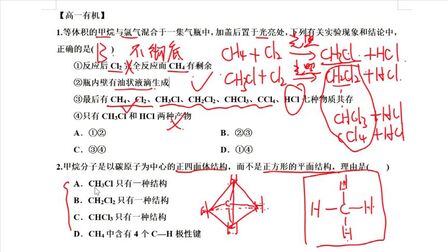 【高一有机】
1.等体积的甲烷与氯气混合于一集气瓶中,加盖后置于光亮处,下列有关实验现象和结论中,
正确的是( B ) 不彻底
①反应后 Cl₂ 完全反应而 CH₄ 有剩余
CH4 + Cl2 → CH3Cl + HCl
②瓶内壁有油状液滴生成
CH3Cl + Cl2 → CH2Cl2 + HCl
③最后有 CH₄、Cl₂、CH₃Cl、CH₂Cl₂、CHCl₃、CCl₄、HCl 七种物质共存
CHCl3 + HCl
④只有 CH₃Cl 和 HCl 两种产物
CCl4 + HCl
A. ①② B. ②③
C. ③④ D. ①④
2.甲烷分子是以碳原子为中心的正四面体结构,而不是正方形的平面结构,理由是( )
A. CH₃Cl 只有一种结构
B. CH₂Cl₂ 只有一种结构
C. CHCl₃ 只有一种结构
D. CH₄ 中含有 4 个 C—H 极性键
H
H—C—H
H